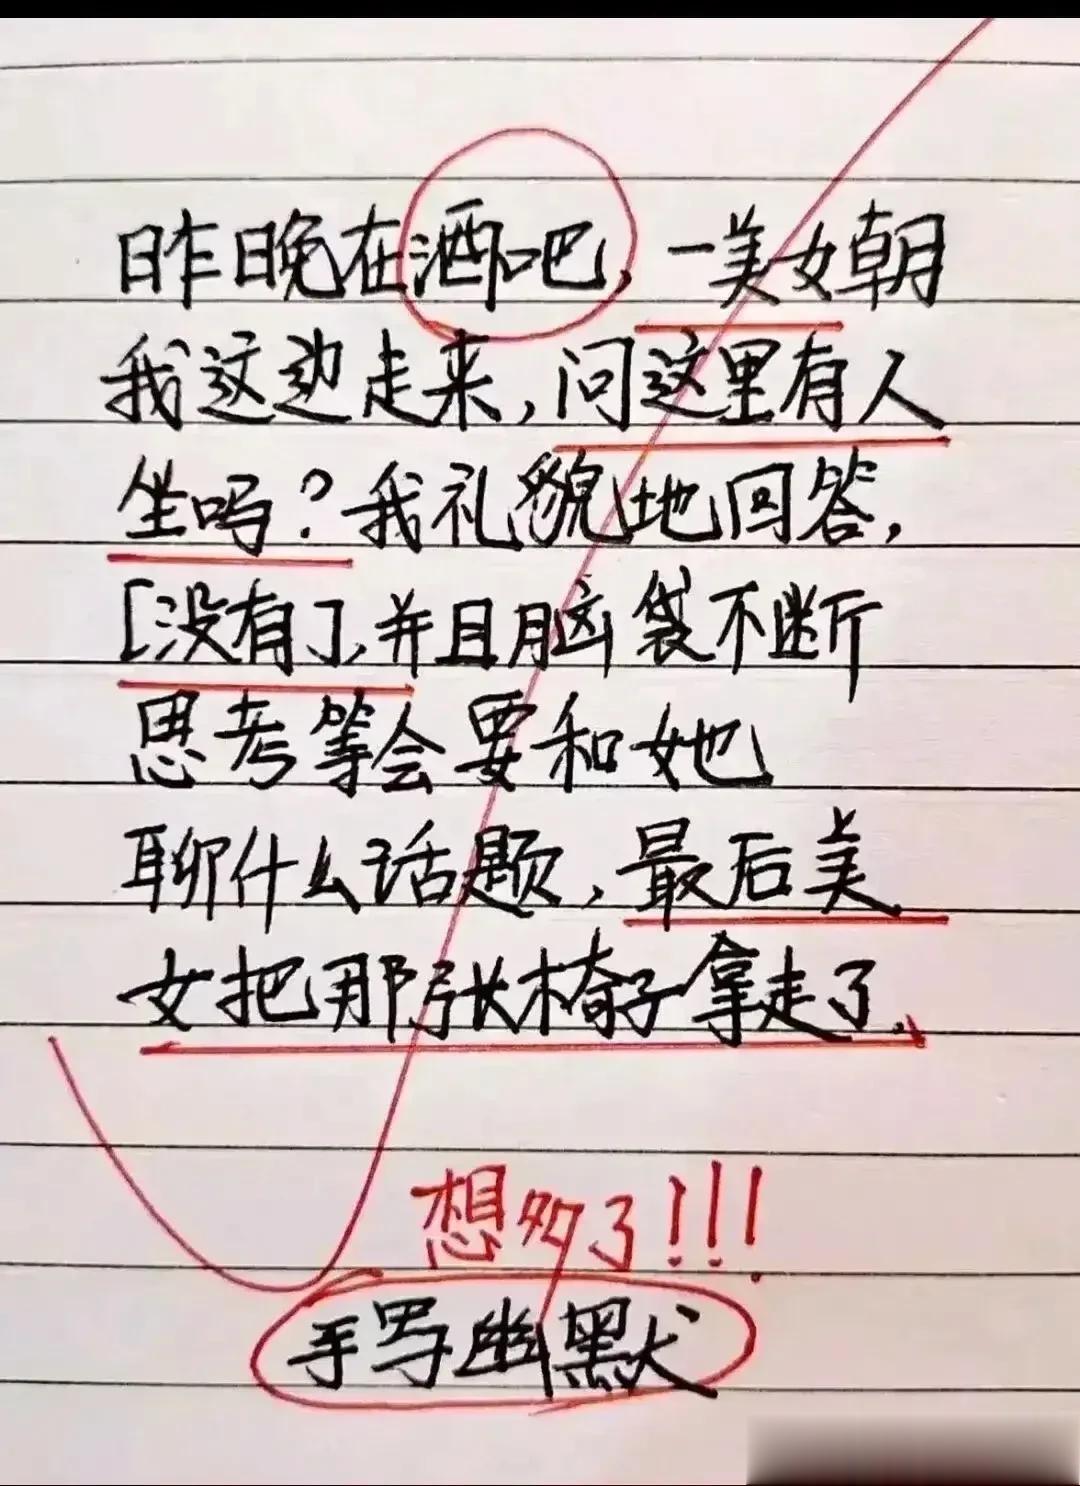 昨晚在酒吧，一美女朝
我这边走来，问这里有人
坐吗？我礼貌地回答，
［没有］，并且脑袋不断
思考等会要和她
聊什么话题，最后美
女把那张椅子拿走了。
想多了！！！
手写幽默